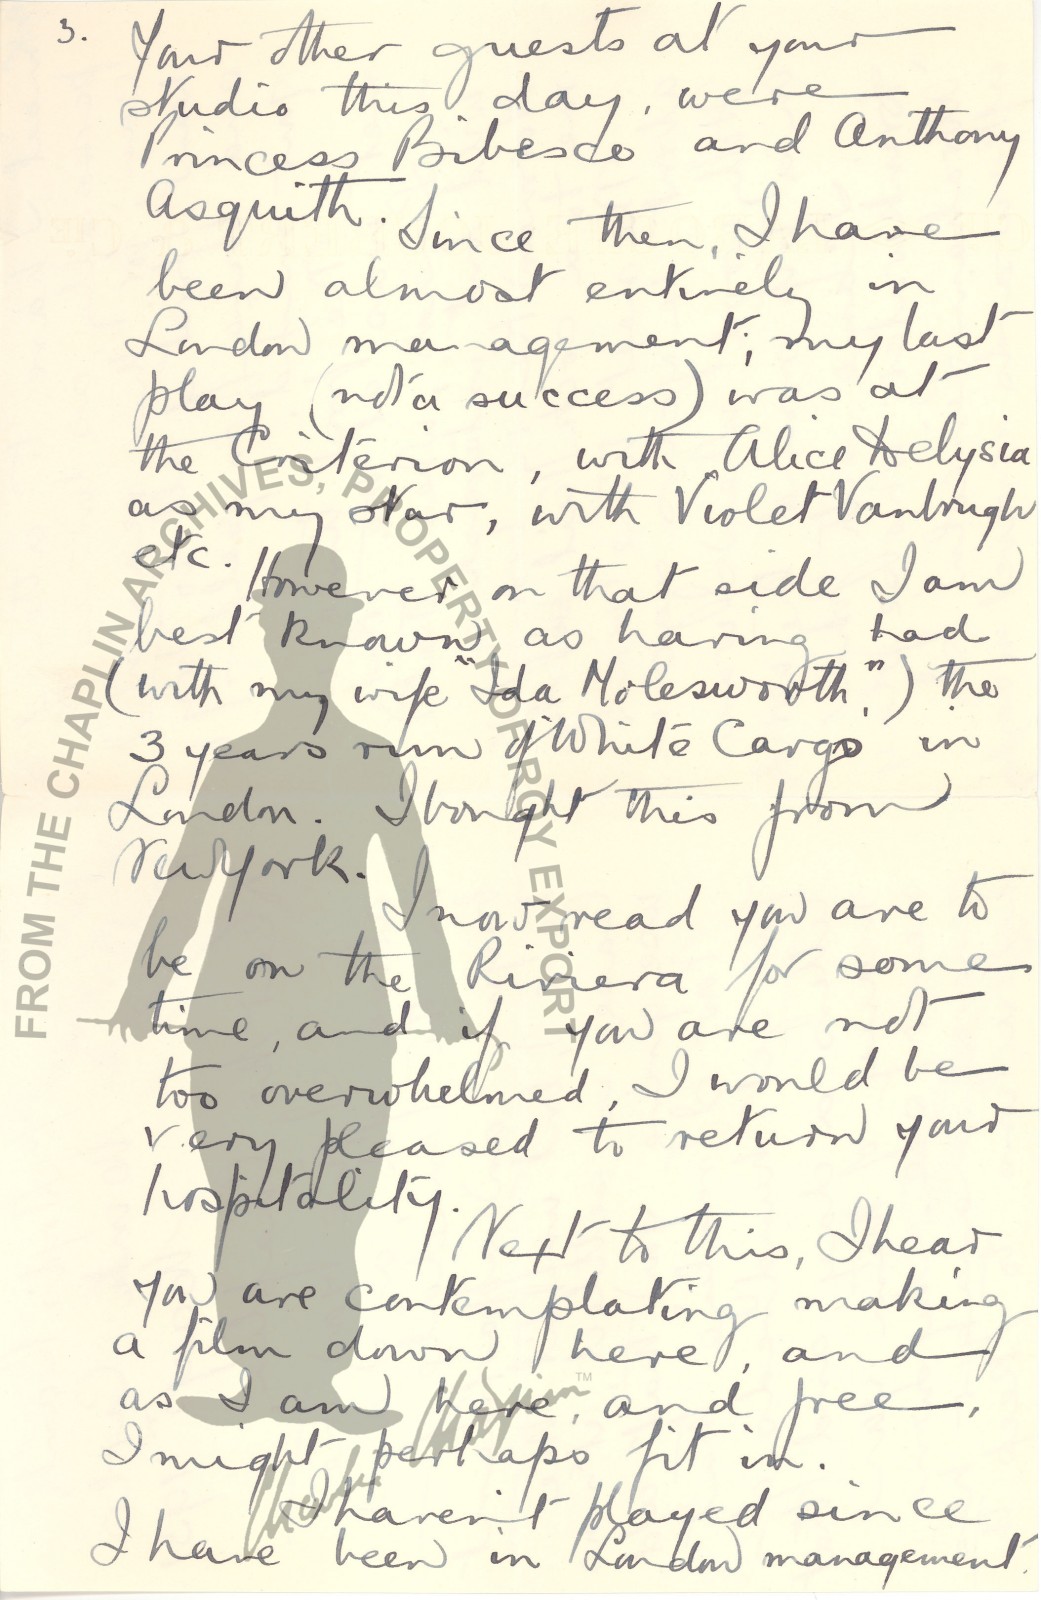 3.
Your other guests at your
studio this day, were
Princess Bibesco and Anthony
Asquith.
Since then, I have
been almost entirely in
London management; my last
play (not a success) was at
the Criterion, with Alice Delysia
as my star, with Violet Vanbrugh
etc.
However on that side I am
best known as having had
(with my wife "Ida Molesworth,") the
3 years run of White Cargo in
London. I bought this from
New York.
I now read you are to
be on the Riviera for some
time, and if you are not
too overwhelmed, I would be
very pleased to return your
hospitality.
Next to this, I hear
you are contemplating making
a film down here, and
as I am here, and free,
I might perhaps fit in.
I haven't played since
I have been in London management.
FROM THE CHAPLIN ARCHIVES, PROPERTY OF ROY EXPORT
Charles Chaplin TM